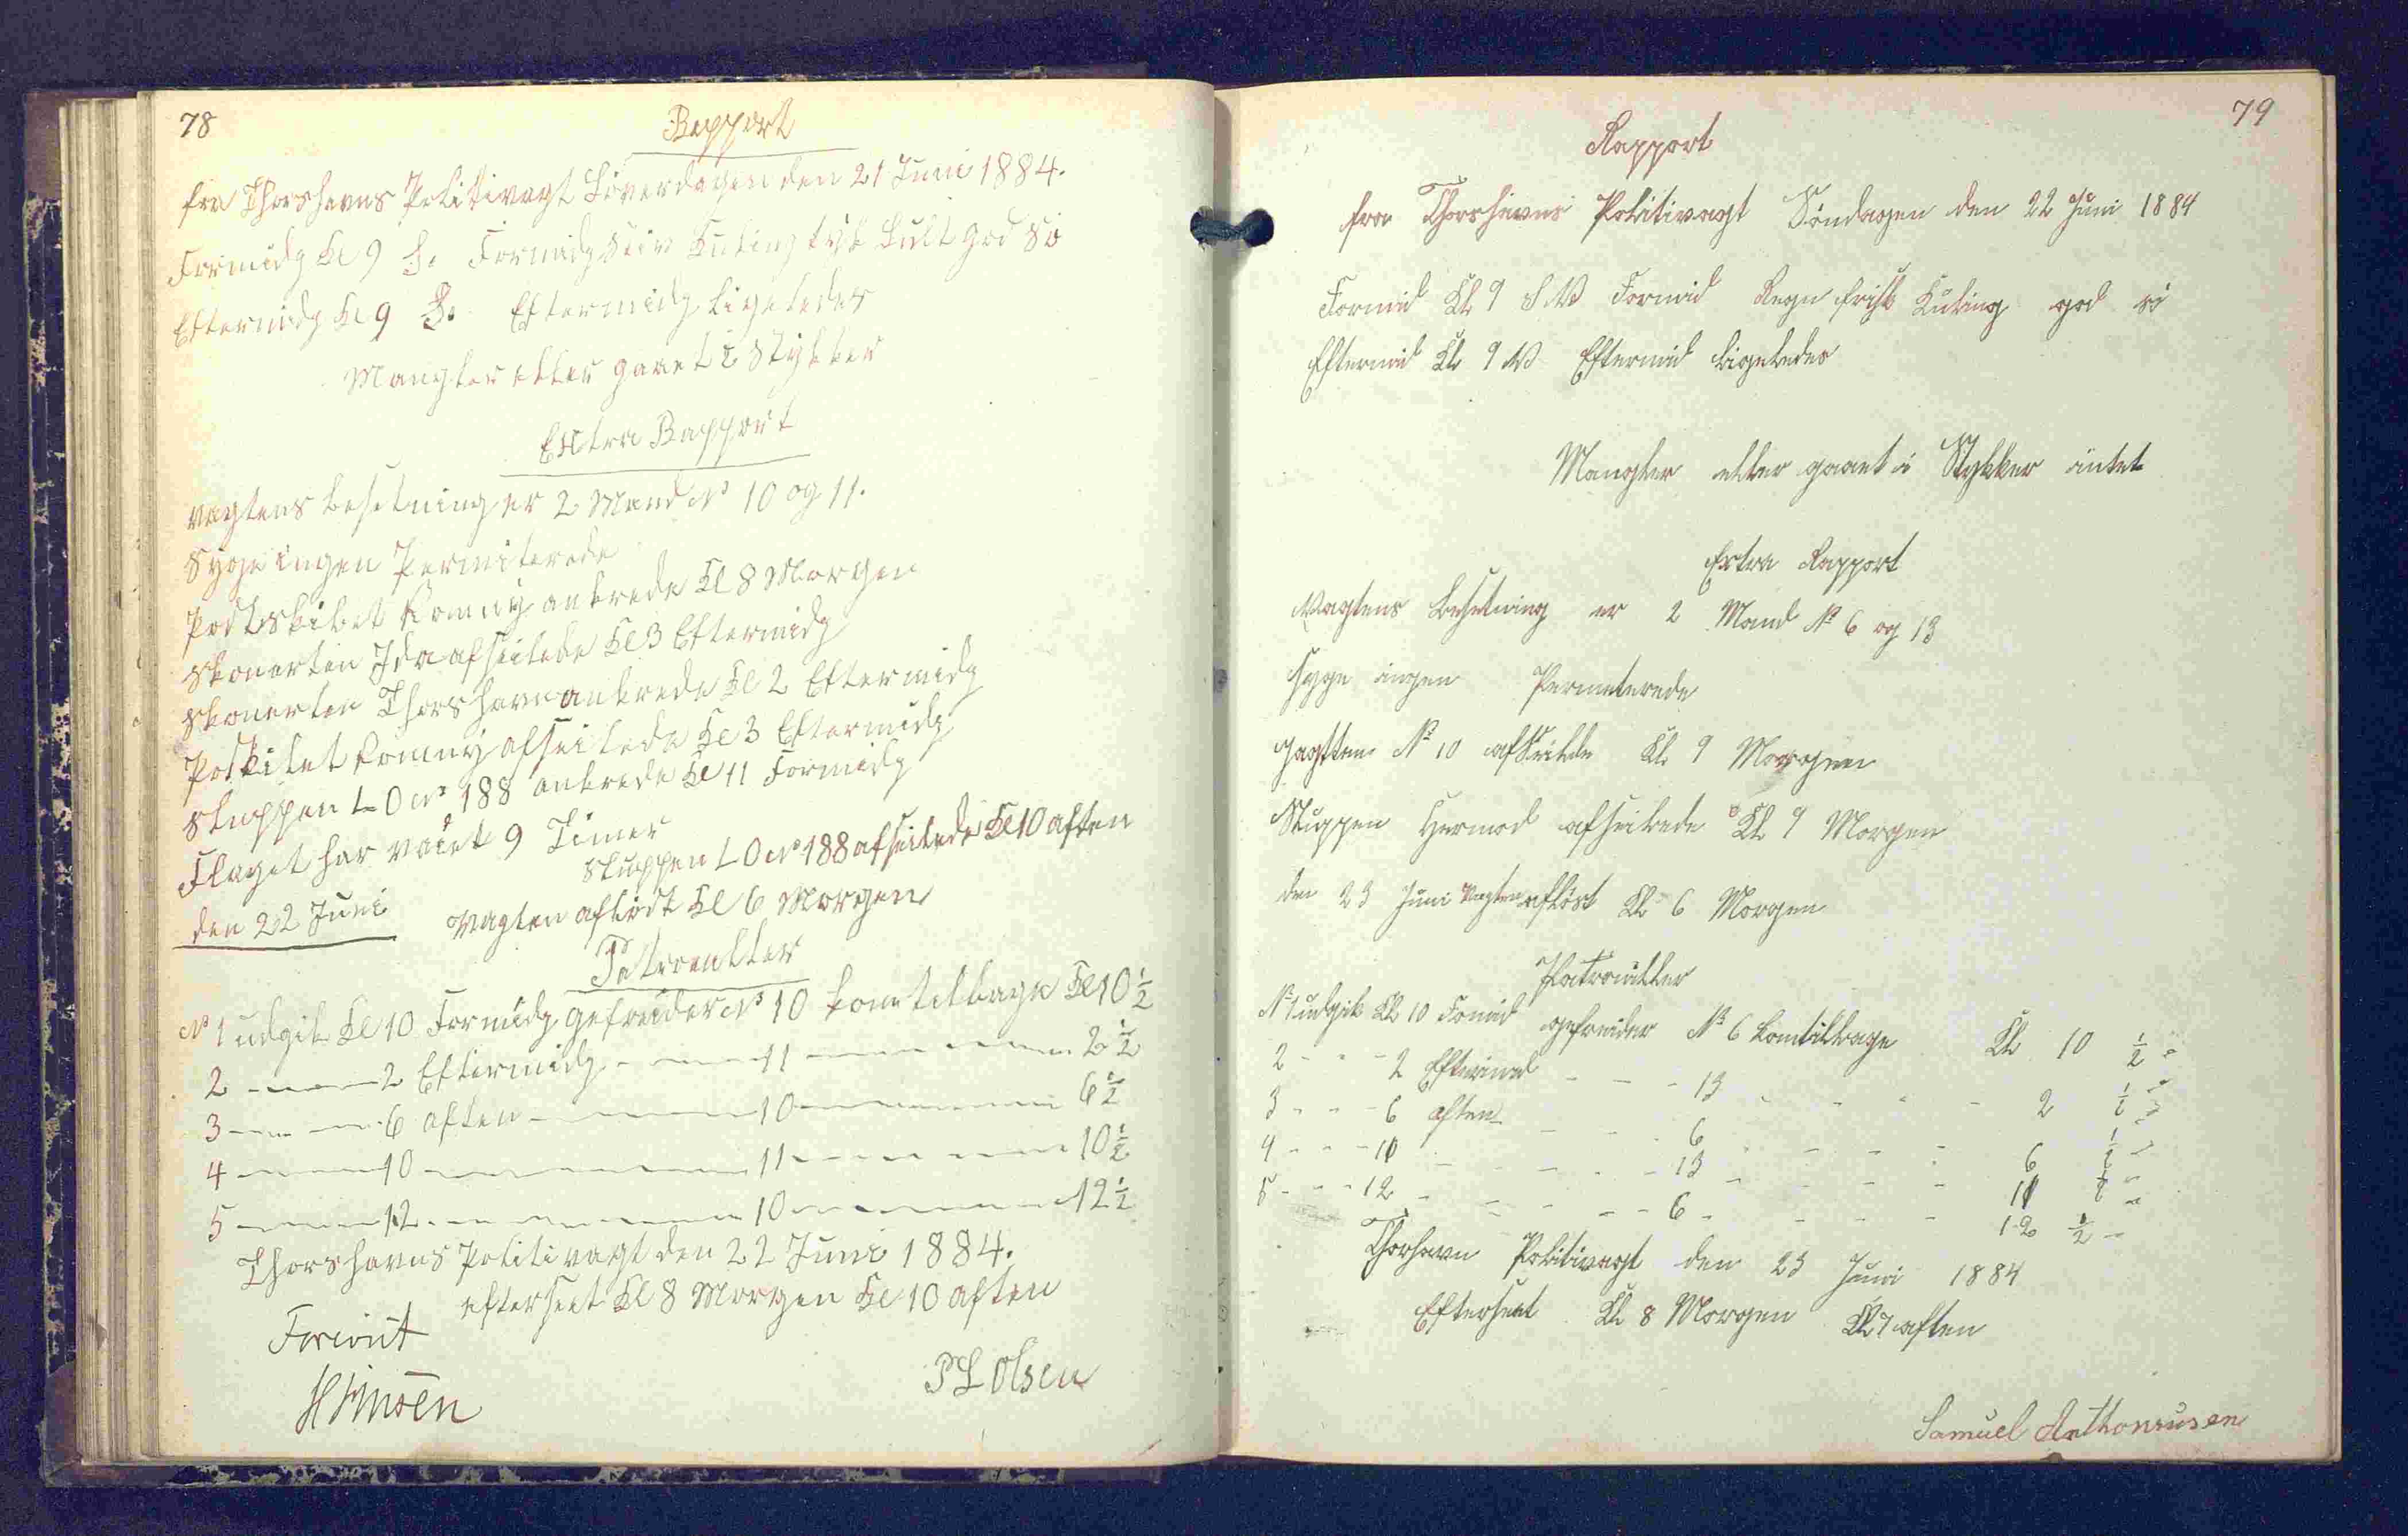 78
Rapport
fra Thorshavns Politivagt Löverdagen den 21 Juni 1884.
Formidg Kl 9 S. Formidg Stiv Kuling tyk Luft god Sö
Eftermidg Kl 9 S. Eftermidg Ligeledes
Mangler eller gaaet i Stykker
Extra Rapport
Vagtens besetning er 2 Mand No 10 og 11.
Syge ingen Permiterede
Postskibet Romny ankrede Kl 8 Morgen
Skonerten Ida afseilede Kl 3 Eftermidg
Skonerten Thorshavn ankrede Kl 2 Eftermidg
Poskibet Romny afseilede Kl 3 Eftermidg
Sluppen L O No 188 ankrede Kl 11 Formidg
Flaget har vaiet 9 Timer
Sluppen L O No 188 afseilede Kl 10 aften
den 22 Juni Vagten aflöst Kl 6 Morgen
Patrouller
No 1 udgik Kl 10 Formidg gefreider No 10 kom tilbage Kl 10 1/2
2 - - - 2 Eftermidg - - - 11 - - - - - 2 1/2
3 - - - 6 aften - - - 10 - - - - - 6 1/2
4 - - - 10 - - - - - 11 - - - - - 10 1/2
5 - - - 12 - - - - - 10 - - - - - 12 1/2
Thorshavns Politivagt den 22 Juni 1884.
efterseet Kl 8 Morgen Kl 10 aften
Forevist
HJensen
P L Olsen
79
Rapport
fra Thorshavns Politivagt Söndagen den 22 Juni 1884
Formid Kl 9 S.V. Formid Regn frisk Kuling god sö
Eftermid Kl 9 V Eftermid ligeledes
Mangler eller gaaet i Stykker intet
Extra Rapport
Vagtens Besetning er 2 Mand No 6 og 13
Syge ingen Permeterede
Jagtten No 10 afseilede Kl. 9 Morgen
Sluppen Hermod afseilede Kl 9 Morgen
den 23 Juni Vagten aflöst Kl 6 Morgen
Patrouiller
No 1 udgik Kl 10 Fomid gefreider No 6 komtilbage Kl 10 1/2 -
2 - - - 2 Eftermid - - - 13 - - - - 2 1/2 -
3 - - - 6 aften - - - 6 - - - - 6 1/2 -
4 - - - 10 - - - - 13 - - - - 10 1/2 -
5 - - - 12 - - - - 6 - - - - 12 1/2 -
Thorshavn Politivagt den 23 Juni 1884
Efterseet Kl 8 Morgen Kl 9 aften
Samuel Anthoniusen